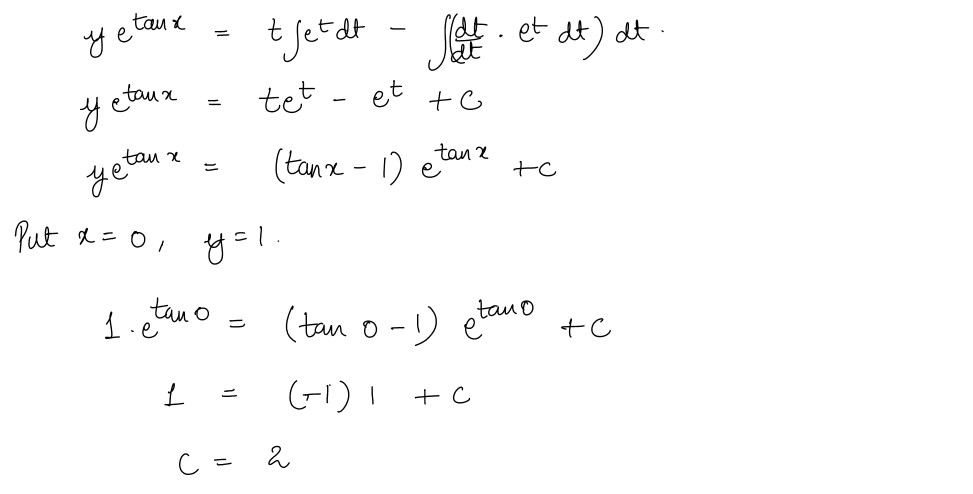 y e^{tan x} = t ∫e^t dt - ∫(∫ dt/dt · e^t dt) dt .
y e^{tan x} = te^t - e^t + c
y e^{tan x} = (tan x - 1) e^{tan x} + c
Put x = 0 , y = 1 .
1 . e^{tan 0} = (tan 0 - 1) e^{tan 0} + c
1 = (-1) 1 + c
c = 2